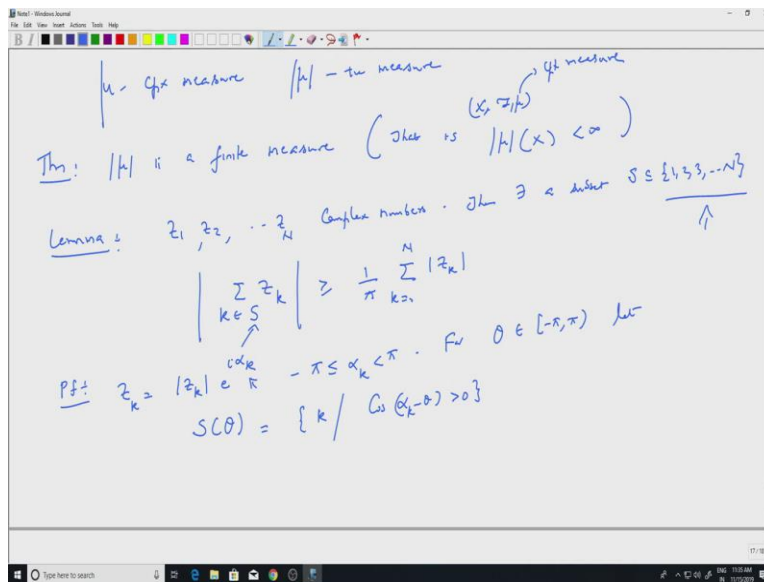 Note1 - Windows Journal
File Edit View Insert Actions Tools Help
μ - cpx measure |μ| - tv measure
(X, F, μ) → cpx measure
Thm: |μ| is a finite measure ( That is |μ|(X) < ∞ )
Lemma: z₁, z₂, ⋯ z_N Complex numbers. Then ∃ a subset S ⊆ {1,2,3, ⋯ N}
| Σ_{k∈S} z_k | ≥ 1/π Σ_{k=1}^{N} |z_k|
Pf: z_k = |z_k| e^{iα_k} -π ≤ α_k < π. For θ ∈ [-π, π) let
S(θ) = { k / Cos(α_k - θ) > 0 }
17/18
Type here to search
ENG 11:35 AM
IN 11/15/2019